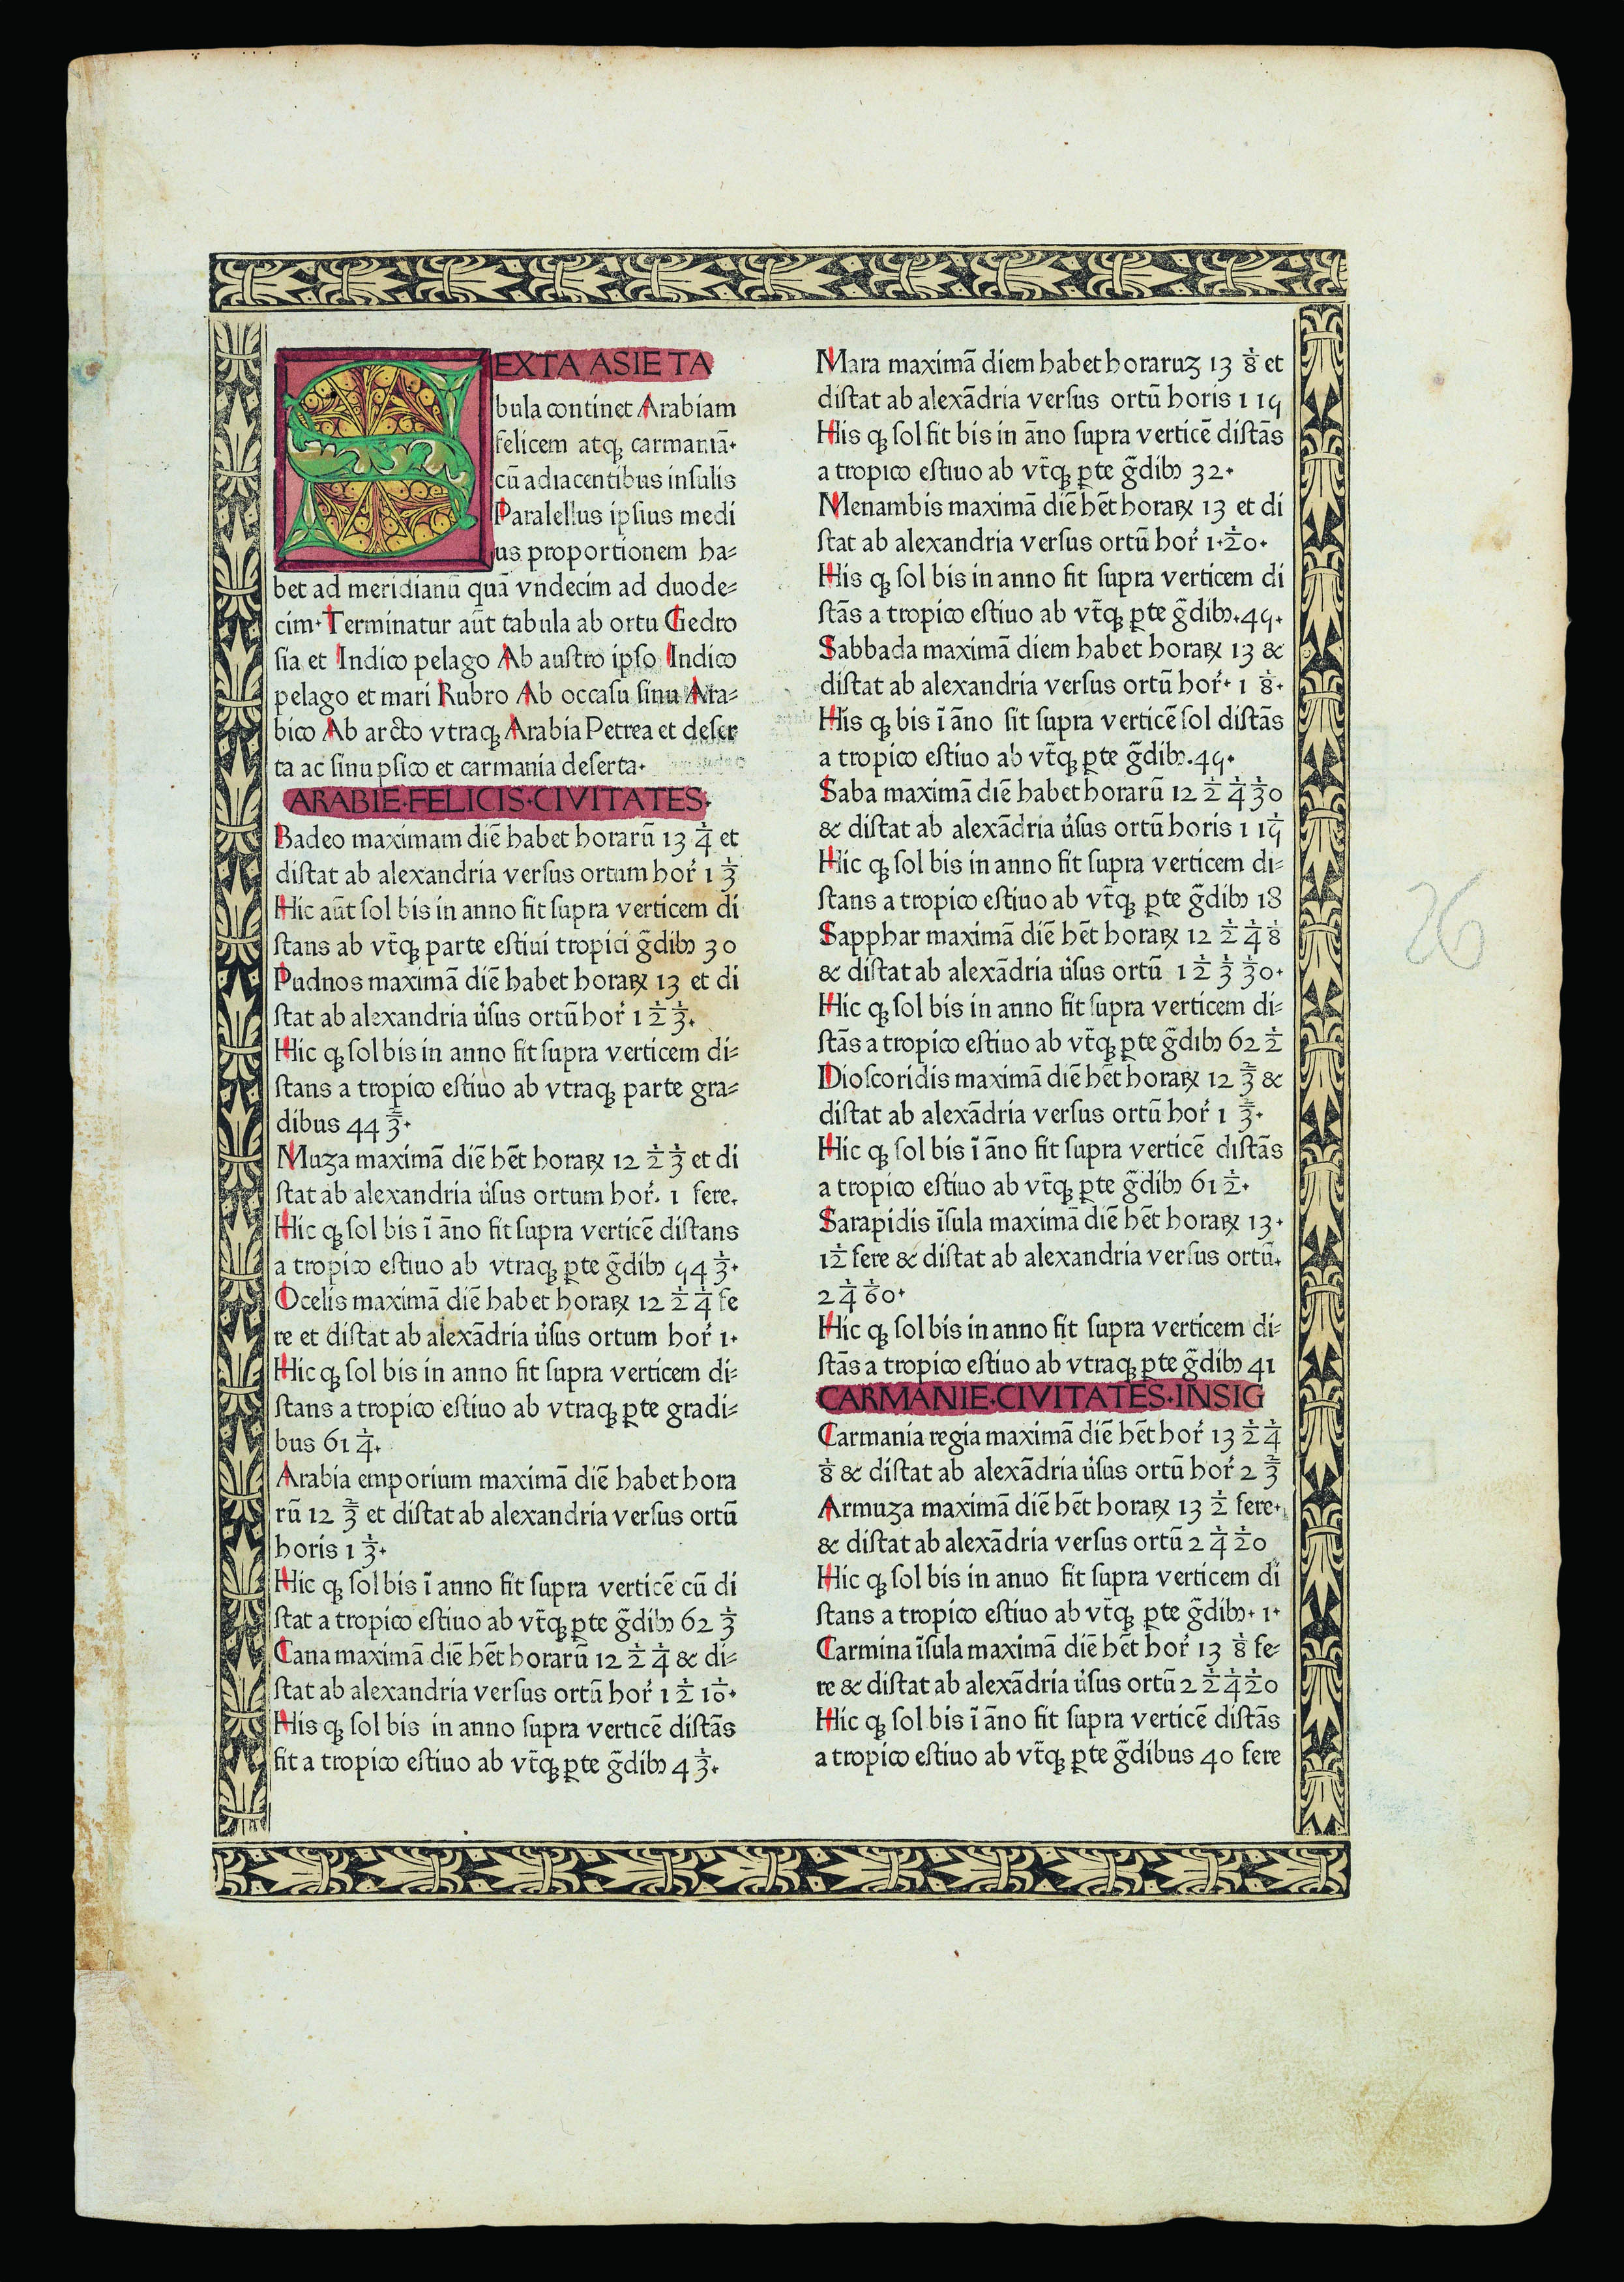 SEXTA ASIE TA
bula continet Arabiam
felicem atqꝫ carmaniā·
cū adiacentibus insulis
Paralellus ipsius medi
us proportionem ha⸗
bet ad meridianū quā vndecim ad duode⸗
cim· Terminatur aūt tabula ab ortu Gedro
sia et Indico pelago Ab austro ipso Indico
pelago et mari Rubro Ab occasu sinu Ara⸗
bico Ab arcto vtraqꝫ Arabia Petrea et deser
ta ac sinu psico et carmania deserta·
ARABIE·FELICIS·CIVITATES·
Badeo maximam diē habet horarū 13 1/4 et
distat ab alexandria versus ortum hor̄ 1 1/3
Hic aūt sol bis in anno fit supra verticem di
stans ab vt̄qꝫ parte estiui tropici ḡdibꝫ 30
Pudnos maximā diē habet horaꝝ 13 et di
stat ab alexandria ūsus ortū hor̄ 1 1/2 1/3·
Hic qꝫ sol bis in anno fit supra verticem di⸗
stans a tropico estiuo ab vtraqꝫ parte gra⸗
dibus 44 2/3·
Muza maximā diē hēt horaꝝ 12 1/2 1/3 et di
stat ab alexandria ūsus ortum hor̄· 1 fere·
Hic qꝫ sol bis ī āno fit supra verticē distans
a tropico estiuo ab vtraqꝫ ꝑte ḡdibꝫ 54 1/3·
Ocelis maximā diē habet horaꝝ 12 1/2 1/4 fe
re et distat ab alexādria ūsus ortum hor̄ 1·
Hic qꝫ sol bis in anno fit supra verticem di⸗
stans a tropico estiuo ab vtraqꝫ ꝑte gradi⸗
bus 61 1/4·
Arabia emporium maximā diē habet hora
rū 12 2/3 et distat ab alexandria versus ortū
horis 1 1/3·
Hic qꝫ sol bis ī anno fit supra verticē cū di
stat a tropico estiuo ab vt̄qꝫ ꝑte ḡdibꝫ 62 1/3
Cana maximā diē hēt horarū 12 1/2 1/4 & di⸗
stat ab alexandria versus ortū hor̄ 1 1/2 1/10·
His qꝫ sol bis in anno supra verticē distās
fit a tropico estiuo ab vt̄qꝫ ꝑte ḡdibꝫ 4 1/3·
Mara maximā diem habet horaruꝫ 13 1/8 et
distat ab alexādria versus ortū horis 1 15
His qꝫ sol fit bis in āno supra verticē distās
a tropico estiuo ab vt̄qꝫ ꝑte ḡdibꝫ 32·
Menambis maximā diē hēt horaꝝ 13 et di
stat ab alexandria versus ortū hor̄ 1·1/20·
His qꝫ sol bis in anno fit supra verticem di
stās a tropico estiuo ab vt̄qꝫ ꝑte ḡdibꝫ·45·
Sabbada maximā diem habet horaꝝ 13 &
distat ab alexandria versus ortū hor̄· 1 1/8·
His qꝫ bis ī āno sit supra verticē sol distās
a tropico estiuo ab vt̄qꝫ ꝑte ḡdibꝫ·45·
Saba maximā diē habet horarū 12 1/2 1/4 1/30
& distat ab alexādria ūsus ortū horis 1 1/15
Hic qꝫ sol bis in anno fit supra verticem di⸗
stans a tropico estiuo ab vt̄qꝫ ꝑte ḡdibꝫ 18
Sapphar maximā diē hēt horaꝝ 12 1/2 1/4 1/8
& distat ab alexādria ūsus ortū 1 1/2 1/3 1/30·
Hic qꝫ sol bis in anno fit supra verticem di⸗
stās a tropico estiuo ab vt̄qꝫ ꝑte ḡdibꝫ 62 1/2
Dioscoridis maximā diē hēt horaꝝ 12 2/3 &
distat ab alexādria versus ortū hor̄ 1 2/3·
Hic qꝫ sol bis ī āno fit supra verticē distās
a tropico estiuo ab vt̄qꝫ ꝑte ḡdibꝫ 61 1/2·
Sarapidis īsula maximā diē hēt horaꝝ 13·
1/12 fere & distat ab alexandria versus ortū·
2 1/4 1/60·
Hic qꝫ sol bis in anno fit supra verticem di⸗
stās a tropico estiuo ab vtraqꝫ ꝑte ḡdibꝫ 41
CARMANIE·CIVITATES·INSIG
Carmania regia maximā diē hēt hor̄ 13 1/2 1/4
1/8 & distat ab alexādria ūsus ortū hor̄ 2 2/3
Armuza maximā diē hēt horaꝝ 13 1/2 fere·
& distat ab alexādria versus ortū 2 1/4 1/20
Hic qꝫ sol bis in anuo fit supra verticem di
stans a tropico estiuo ab vt̄qꝫ ꝑte ḡdibꝫ· 1·
Carmina īsula maximā diē hēt hor̄ 13 1/8 fe⸗
re & distat ab alexādria ūsus ortū 2 1/2 1/4 1/20
Hic qꝫ sol bis ī āno fit supra verticē distās
a tropico estiuo ab vt̄qꝫ ꝑte ḡdibus 40 fere
26